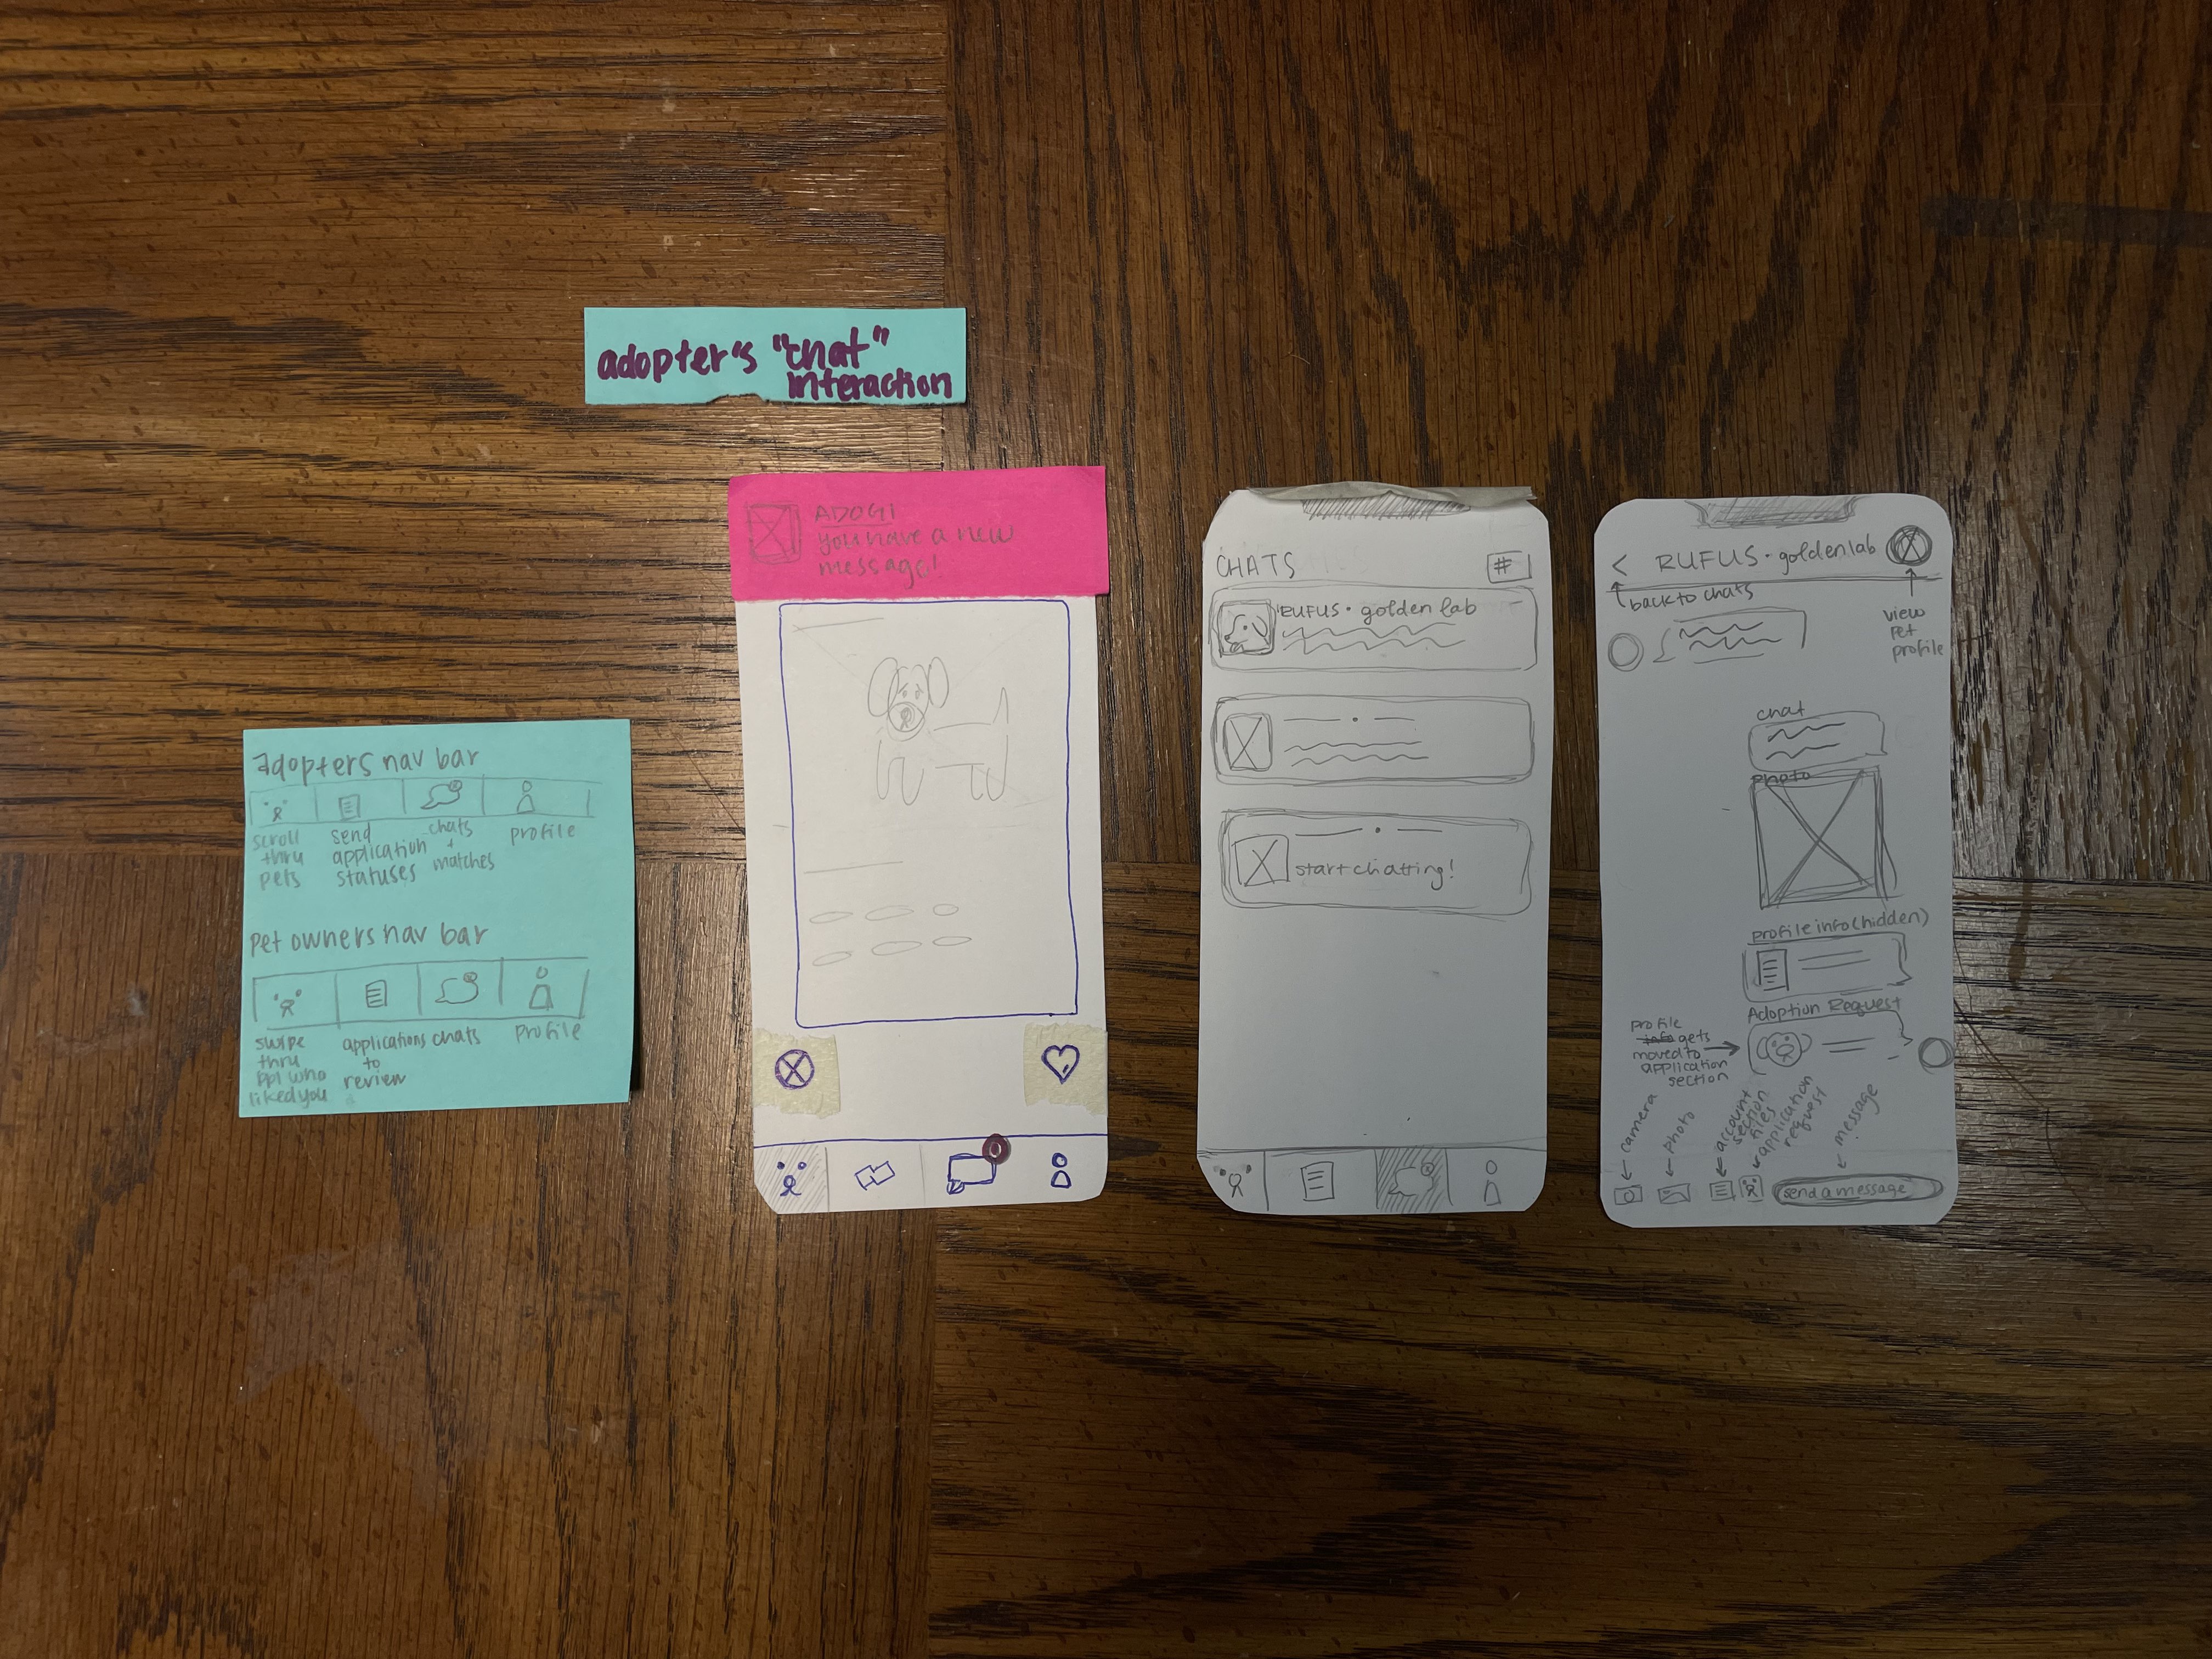 adopter's "chat"
interaction
Adopters nav bar
scroll
thru
pets
send
application
statuses
chats
+
matches
profile
pet owners nav bar
swipe
thru
ppl who
liked you
applications
to
review
chats
profile
ADOGI
you have a new
message!
CHATS
#
RUFUS · golden lab
start chatting!
< RUFUS · golden lab
back to chats
view
pet
profile
chat
photo
profile info (hidden)
Adoption Request
profile
info gets
moved to
application
section
camera
photo
account
section
files
application
request
message
send a message